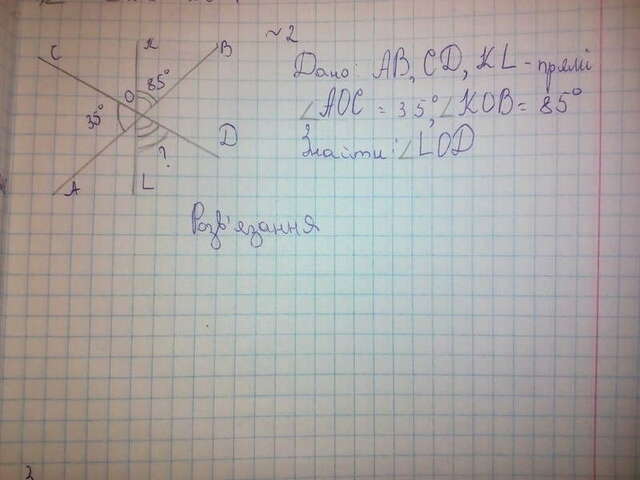 ~2
C
K
B
85°
O
35°
D
?
A
L
Дано: AB, CD, KL - прямі
∠AOC = 35°, ∠KOB = 85°
Знайти: ∠LOD
Розв'язання
3